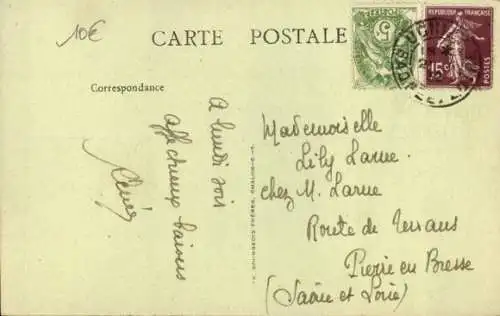 10€
CARTE POSTALE
Correspondance
A lundi soir
affectueux baisers
5
REPUBLIQUE FRANÇAISE
15c
POSTES
Mademoiselle
Lily Larue
chez M. Larue
Route de
en Bresse
(Saône et Loire)
BOURGEOIS FRÈRES, CHALON-S-S.